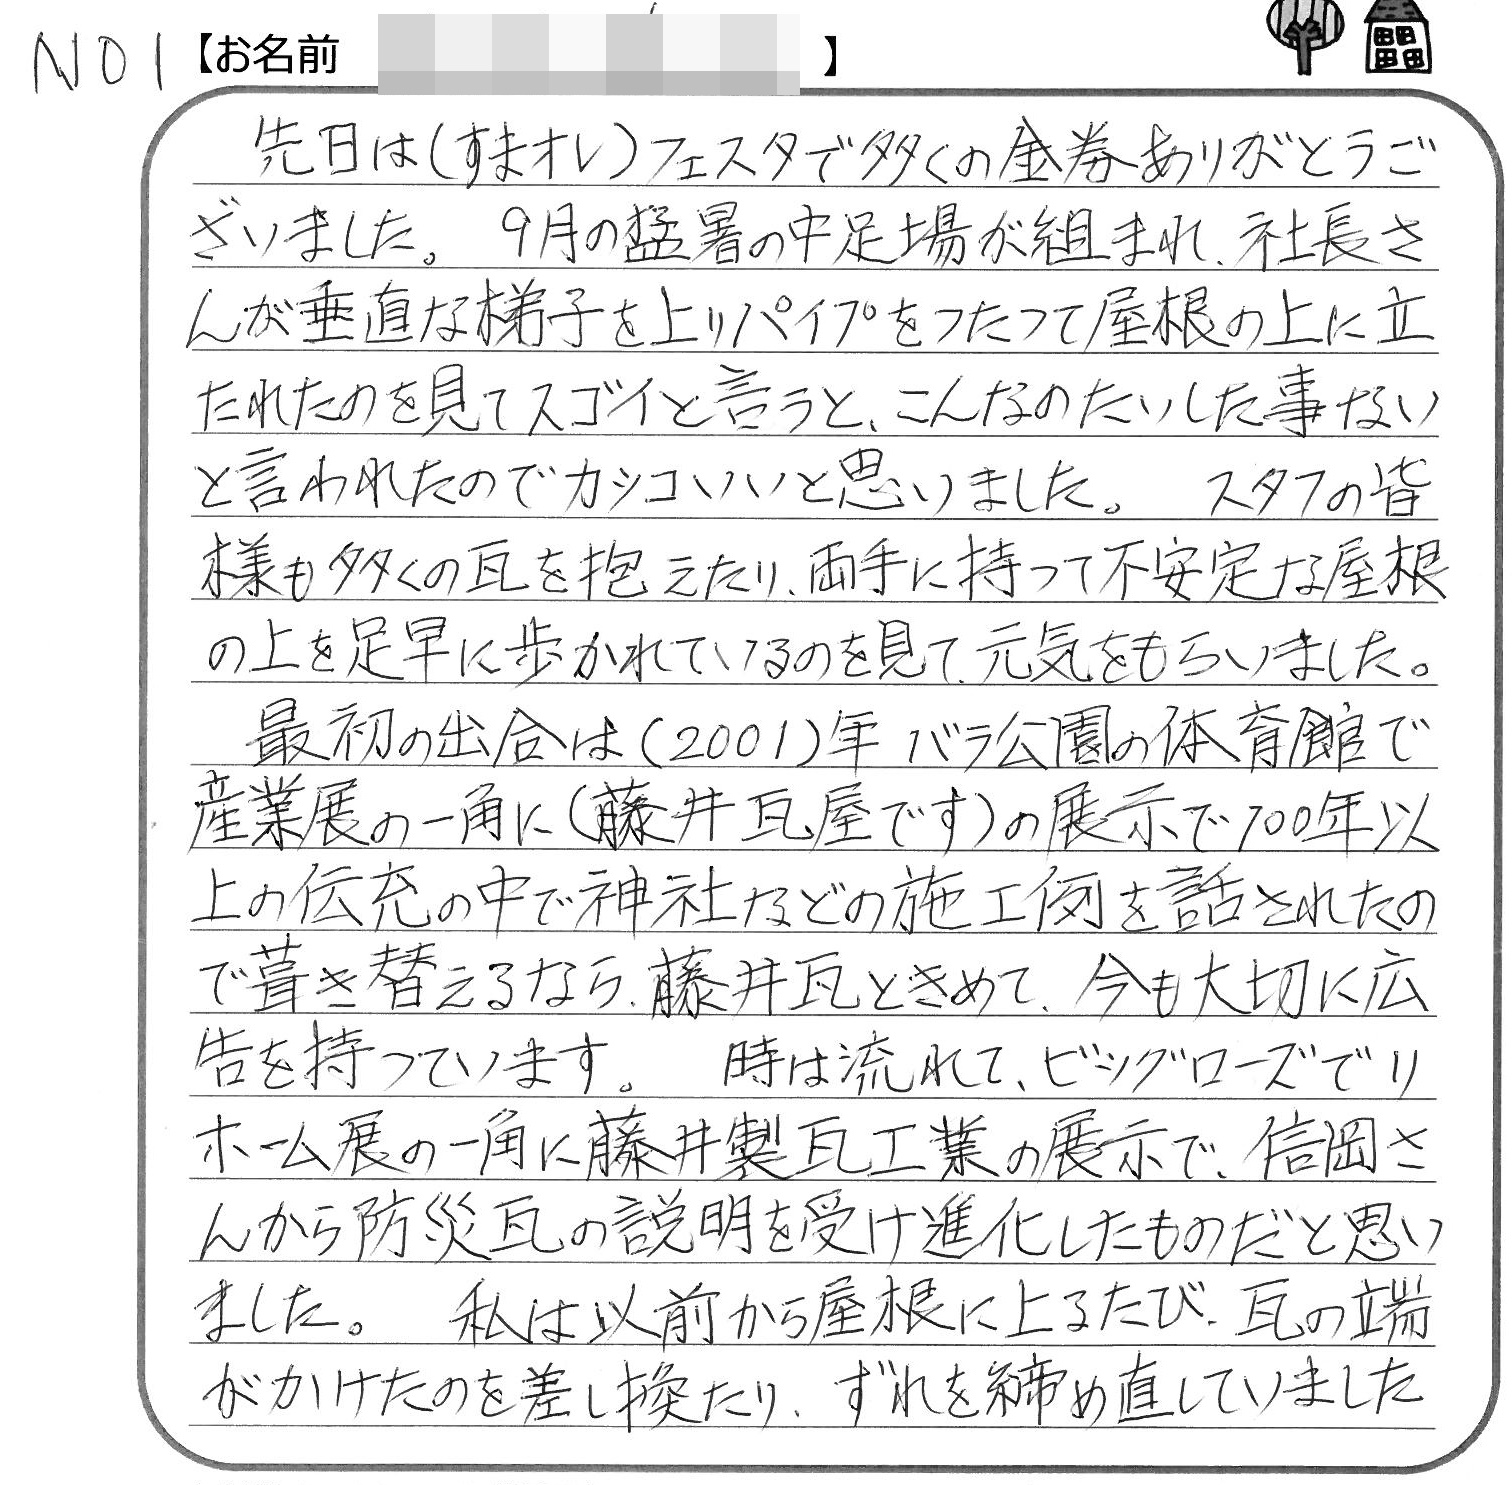 NO1【お名前 】
先日は(すまオレ)フェスタで多くの金券ありがとうご
ざいました。 9月の猛暑の中足場が組まれ、社長さ
んが垂直な梯子を上りパイプをつたって屋根の上に立
たれたのを見てスゴイと言うと、こんなのたいした事ない
と言われたのでカッコいいと思いました。 スタフの皆
様も多くの瓦を抱えたり、両手に持って不安定な屋根
の上を足早に歩かれているのを見て、元気をもらいました。
最初の出合は(2001)年 バラ公園の体育館で
産業展の一角に(藤井瓦屋です)の展示で100年以
上の伝充の中で神社などの施工例を話されたの
で葺き替えるなら、藤井瓦ときめて、今も大切に広
告を持っています。 時は流れて、ビッグローズでリ
ホーム展の一角に藤井製瓦工業の展示で、信岡さ
んから防災瓦の説明を受け進化したものだと思い
ました。 私は以前から屋根に上るたび、瓦の端
がかけたのを差し換たり、ずれを締め直していました